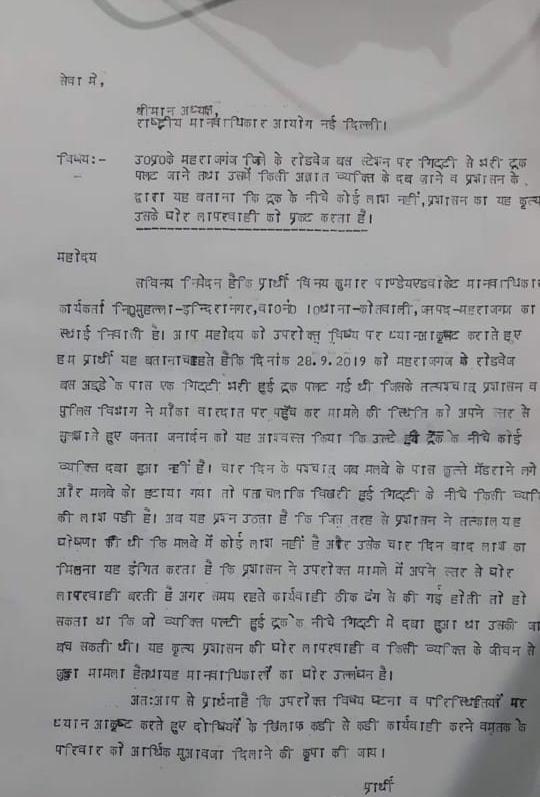 सेवा में,
श्रीमान अध्यक्ष,
राष्ट्रीय मानवाधिकार आयोग नई दिल्ली।
विषय:- उ0प्र0के महराजगंज जिले के रोडवेज बस स्टेशन पर गिट्टी से भरी ट्रक
पलट जाने तथा उसमें किसी अज्ञात व्यक्ति के दब जाने व प्रशासन के
द्वारा यह बताना कि ट्रक के नीचे कोई लाश नहीं,प्रशासन का यह कृत्य
उसके घोर लापरवाही को प्रकट करता है।
महोदय
सविनय निवेदन हैकि प्रार्थी विनय कुमार पाण्डेयएडवोकेट मानवाधिकार
कार्यकर्ता नि0मुहल्ला-इन्दिरानगर,वा0नं0 10थाना-कोतवाली,जनपद-महराजगंज का
स्थाई निवासी है। आप महोदय को उपरोक्त विषय पर ध्यानआकृष्ट कराते हुए
हम प्रार्थी यह बतानाचाहते हैकि दिनांक 28.9.2019 को महराजगंज के रोडवेज
बस अड्डे के पास एक गिट्टी भरी हुई ट्रक पलट गई थी जिसके तत्पश्चात् प्रशासन व
पुलिस विभाग ने मौका वारदात पर पहुँच कर मामले की स्थिति को अपने स्तर से
सुलझाते हुए जनता जनार्दन को यह आश्वस्त किया कि उल्टे हुये ट्रक के नीचे कोई
व्यक्ति दबा हुआ नहीं है। चार दिन के पश्चात् जब मलबे के पास कुत्ते मँडराने लगे
और मलबे को हटाया गया तो पता चलाकि बिखरी हुई गिट्टी के नीचे किसी व्यक्ति
की लाश पडी है। अब यह प्रश्न उठता है कि जिस तरह से प्रशासन ने तत्काल यह
घोषणा की थी कि मलबे में कोई लाश नहीं है और उसके चार दिन बाद लाश का
मिलना यह इंगित करता है कि प्रशासन ने उपरोक्त मामले में अपने स्तर से घोर
लापरवाही बरती है अगर समय रहते कार्यवाही ठीक ढंग से की गई होती तो हो
सकता था कि जो व्यक्ति पल्टी हुई ट्रक के नीचे गिट्टी में दबा हुआ था उसकी
बच सकती थी। यह कृत्य प्रशासन की घोर लापरवाही व किसी व्यक्ति के जीवन से
जुड़ा मामला हैतथायह मानवाधिकारों का घोर उल्लंघन है।
अतःआप से प्रार्थनाहै कि उपरोक्त विषय घटना व परिस्थितियों पर
ध्यान आकृष्ट करते हुए दोषियों के खिलाफ कडी से कडी कार्यवाही करने वमृतक के
परिवार को आर्थिक मुआवजा दिलाने की कृपा की जाय।
प्रार्थी